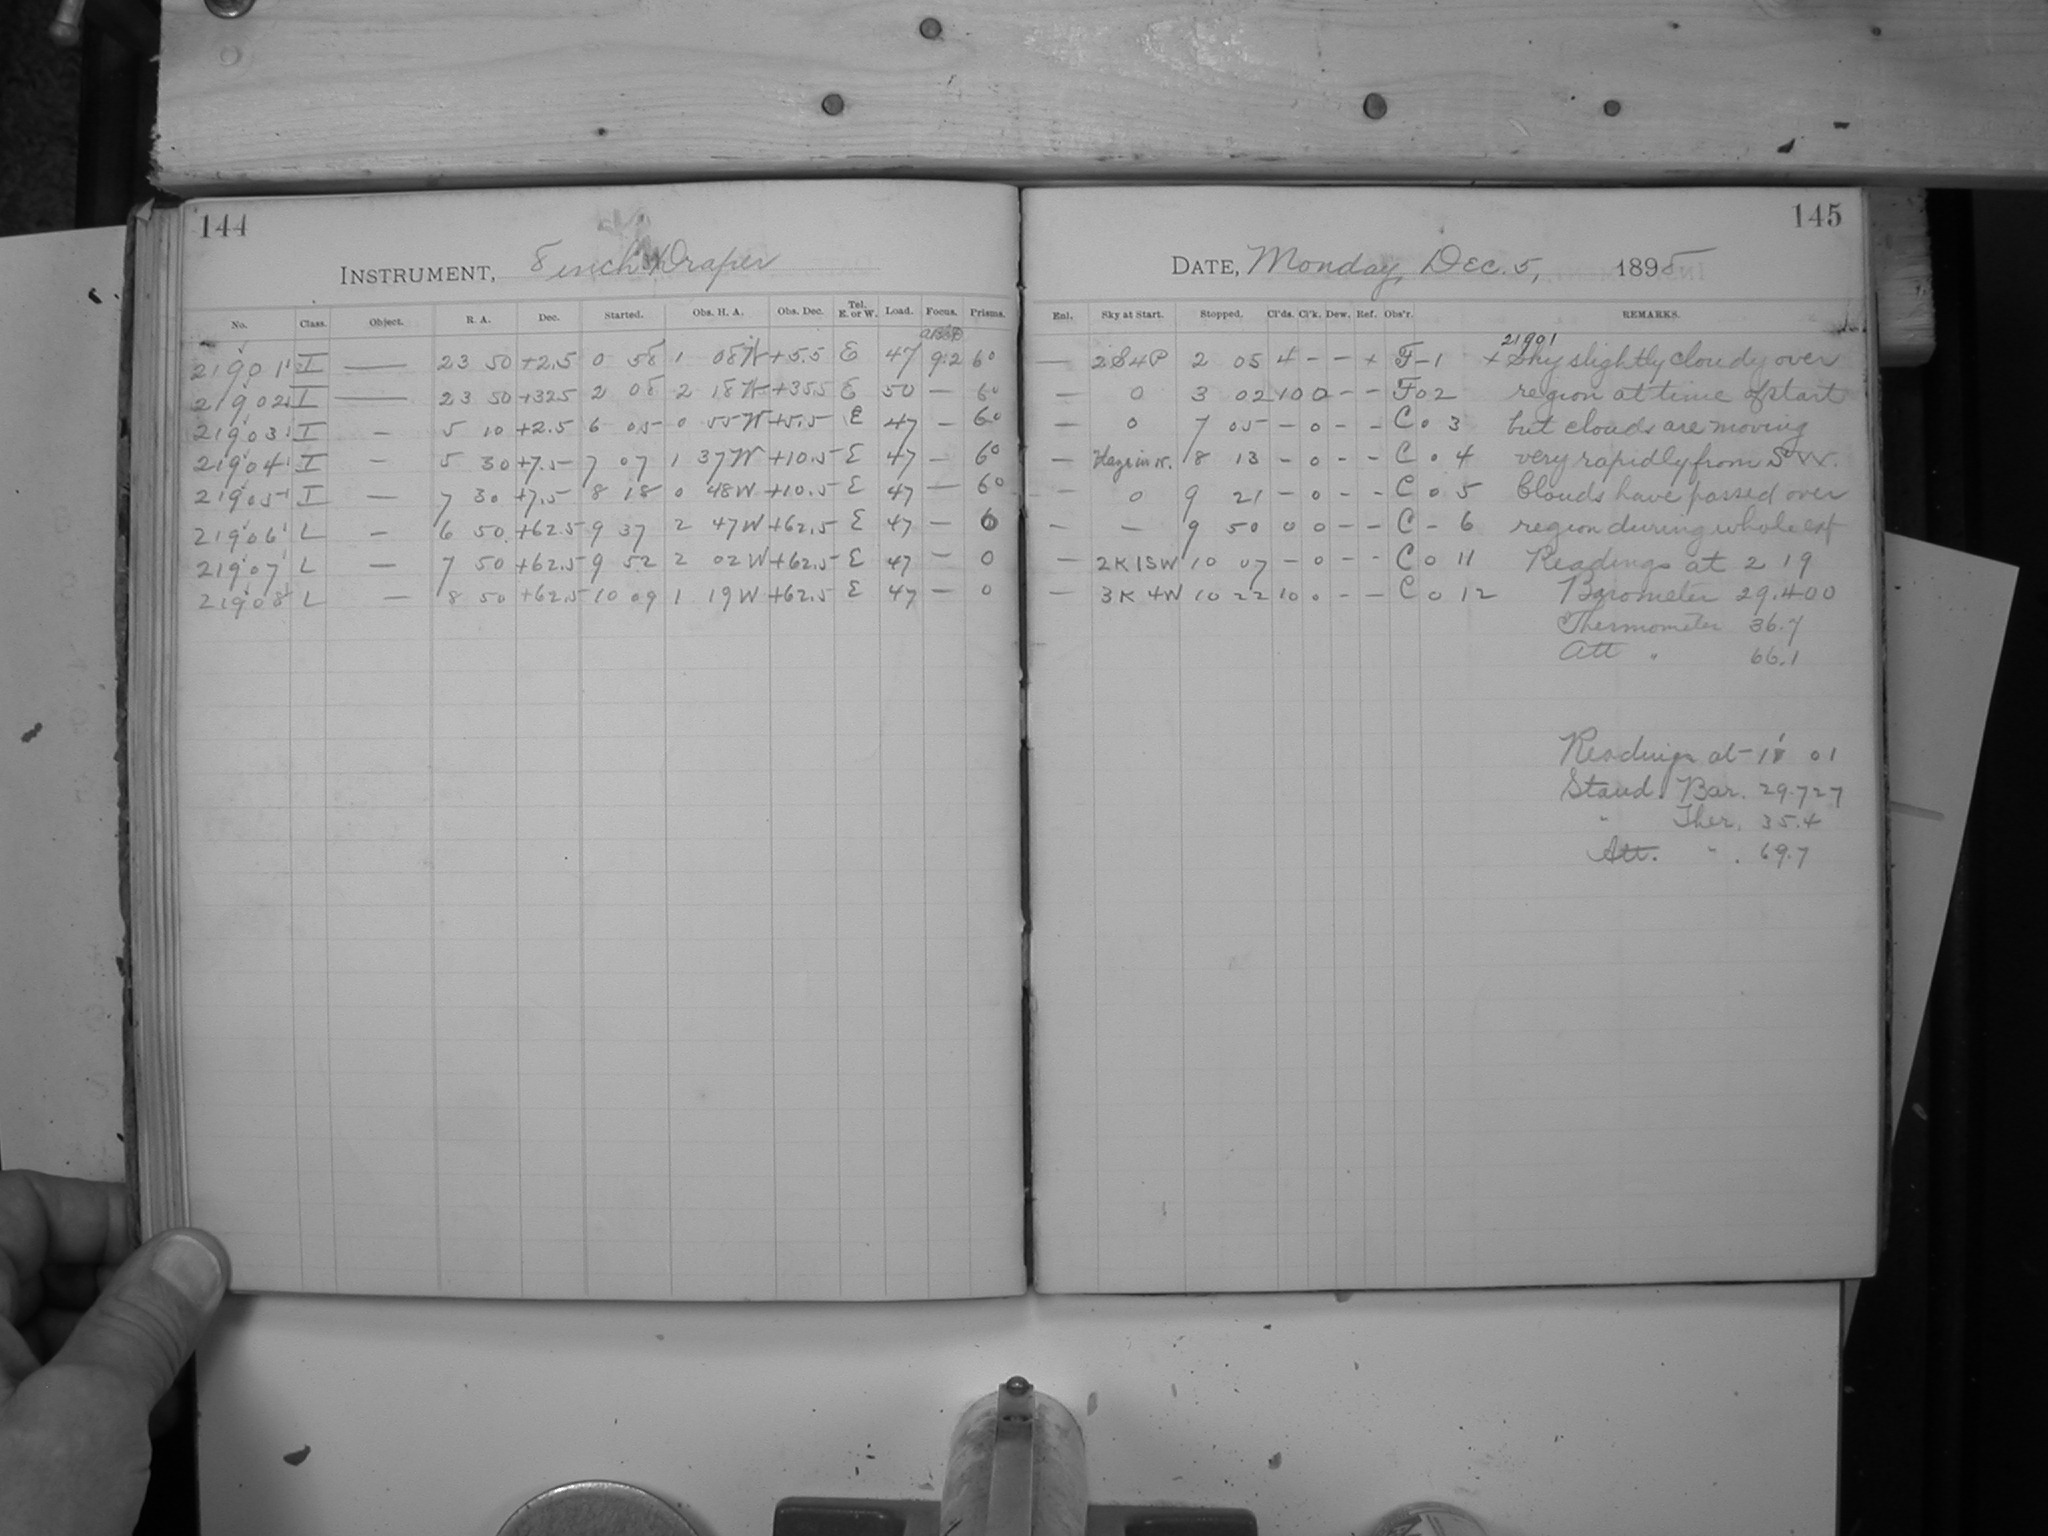 144
INSTRUMENT, 8 inch Draper
No. Class. Object. R. A. Dec. Started. Obs. H. A. Obs. Dec. Tel. E. or W. Load. Focus. Prisms.
21901 I — 23 50 +2.5 0 58 1 08 W +5.5 E 47 9.2 60
21902 I — 23 50 +325 2 08 2 18 W +355 E 50 — 60
21903 I — 5 10 +2.5 6 05 0 55 W +5.5 E 47 — 60
21904 I — 5 30 +7.5 7 07 1 37 W +10.5 E 47 — 60
21905 I — 7 30 +7.5 8 18 0 48 W +10.5 E 47 — 60
21906 L — 6 50 +62.5 9 37 2 47 W +62.5 E 47 — 0
21907 L — 7 50 +62.5 9 52 2 02 W +62.5 E 47 — 0
21908 L — 8 50 +62.5 10 09 1 19 W +62.5 E 47 — 0
145
DATE, Monday, Dec. 5, 1898
Enl. Sky at Start. Stopped. Cl'ds. Cl'k. Dew. Ref. Obs'r. REMARKS.
21901
— 2S4P 2 05 4 - - + F - 1 + Sky slightly cloudy over
— 0 3 02 10 0 - - F 0 2 region at time of start
— 0 7 05 - 0 - - C 0 3 but clouds are moving
— Haze in N. 8 13 - 0 - - C 0 4 very rapidly from S.W.
— 0 9 21 - 0 - - C 0 5 Clouds have passed over
— — 9 50 0 0 - - C - 6 region during whole exp
— 2K1SW 10 07 - 0 - - C 0 11 Readings at 2 19
— 3K4W 10 22 10 0 - - C 0 12 Barometer 29.400
Thermometer 36.7
Att " 66.1
Readings at 11 01
Stand. Bar. 29.727
" Ther. 35.4
Att. " . 69.7